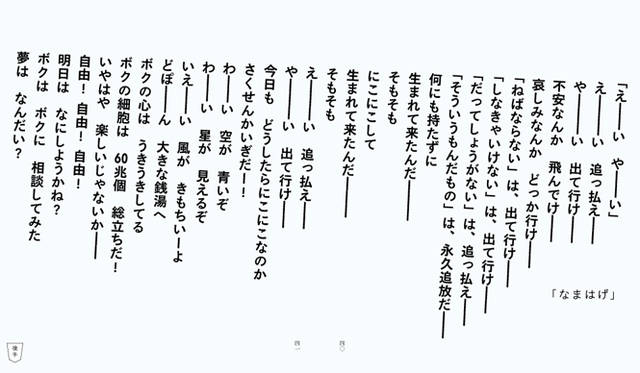 「なまはげ」
「えーーい　やーーい」
えーーい　追っ払えーー
やーーい　出て行けーー
不安なんか　飛んでけーー
哀しみなんか　どっか行けーー
「ねばならない」は、出て行けーー
「しなきゃいけない」は、出て行けーー
「だってしょうがない」は、追っ払えーー
「そういうもんだもの」は、永久追放だーー
何にも持たずに
生まれて来たんだーー
そもそも
にこにこして
生まれて来たんだーー
そもそも
えーーい　追っ払えーー
やーーい　出て行けーー
今日も　どうしたらにこにこなのか
さくせんかいぎだー！
わーーい　空が　青いぞ
わーーい　星が　見えるぞ
いえーーい　風が　きもちいーよ
どぼーーん　大きな銭湯へ
ボクの心は　うきうきしてる
ボクの細胞は　60兆個　総立ちだ！
いやはや　楽しいじゃないかーー
自由！自由！自由！
明日は　なにしようかね？
ボクは　ボクに　相談してみた
夢は　なんだい？
四〇
四一